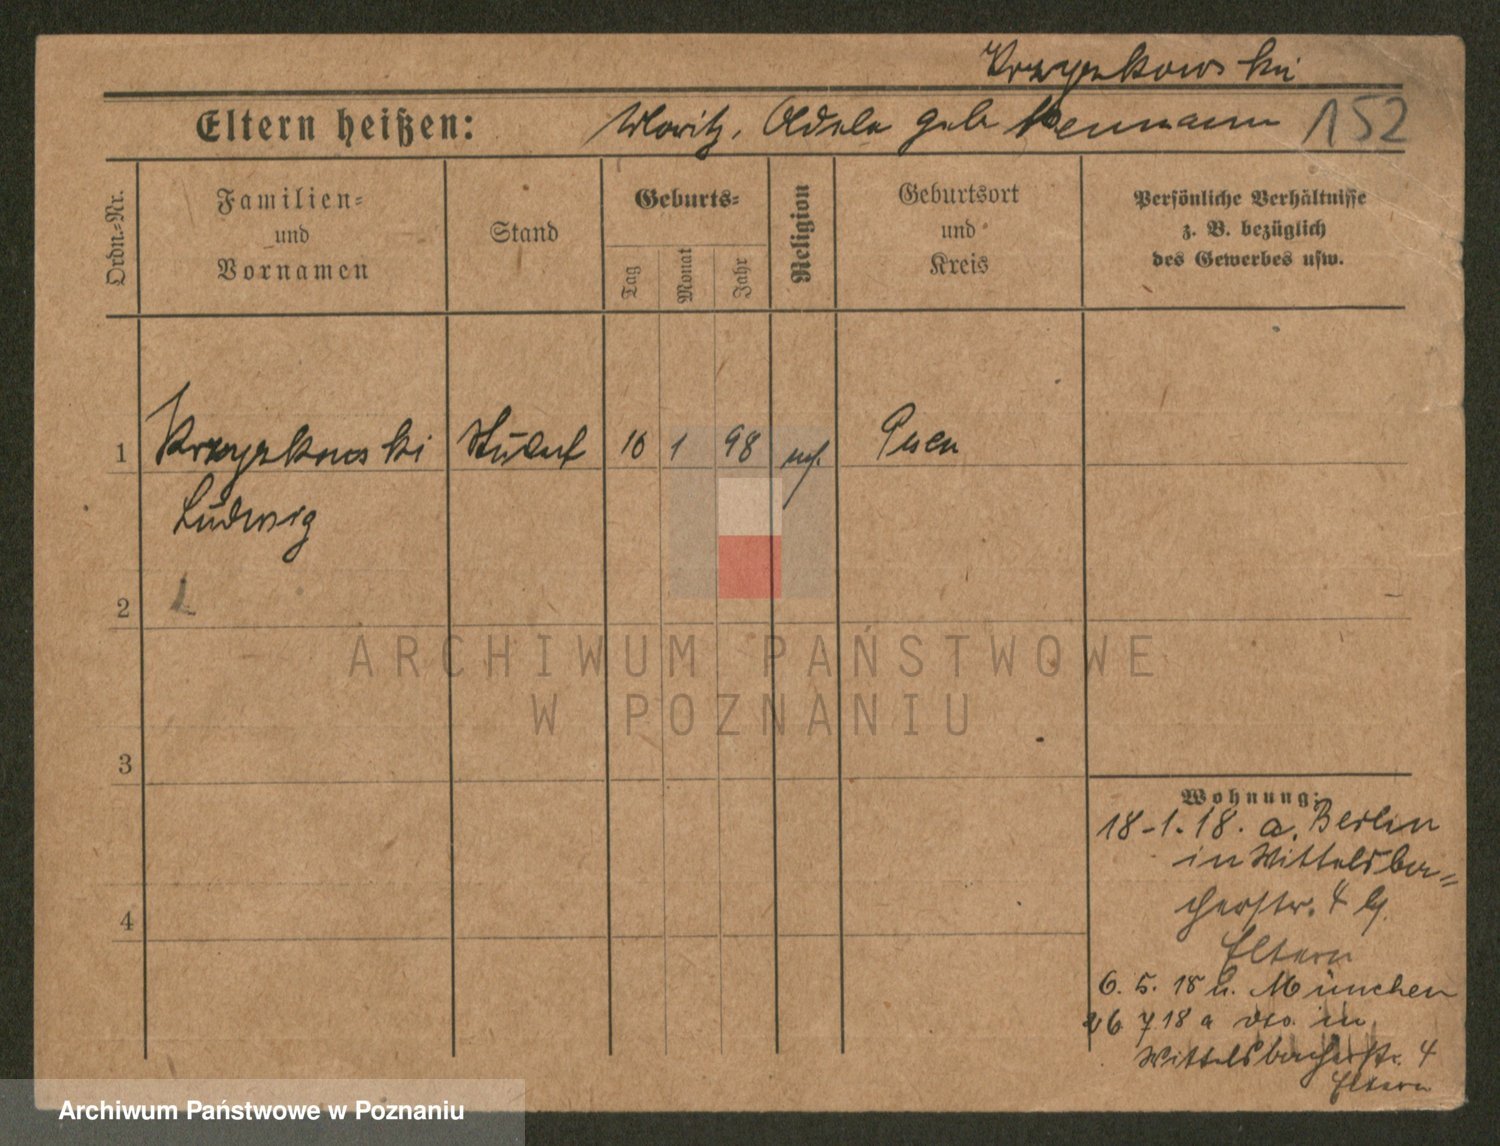 Krzyzkowski
Eltern heißen: Moritz, Adele geb Neumann 152
Ordn.-Nr.
Familien-
und
Vornamen
Stand
Geburts-
Tag
Monat
Jahr
Religion
Geburtsort
und
Kreis
Persönliche Verhältnisse
z. B. bezüglich
des Gewerbes usw.
1 Krzyzkowski Student 10 1 98 Posen
Ludwig
2
3
4
Wohnung:
18-1.18. a. Berlin
in Wittelsba-
cherstr. 4
Eltern
6. 5. 18 n. München
26 7 18 a dto. in
Wittelsbacherstr. 4
Eltern
ARCHIWUM PAŃSTWOWE
W POZNANIU
Archiwum Państwowe w Poznaniu